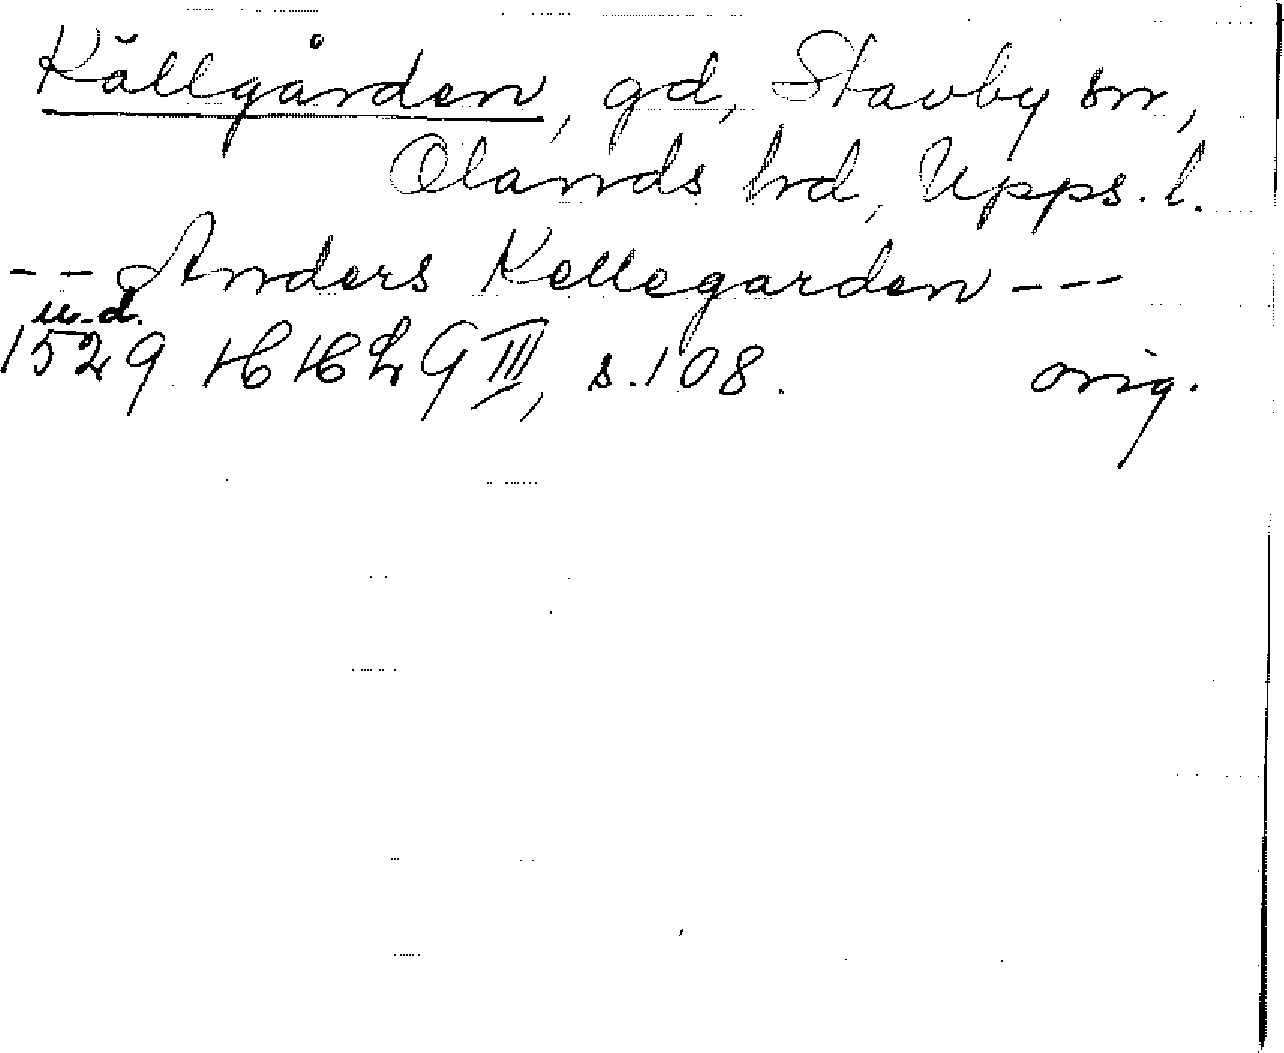 Källgården, gd, Stavby sn,
Olands hd, Upps. l.
-- Anders Kellegarden ---
u. d.
1529 HH 29 III, s. 108. orig.